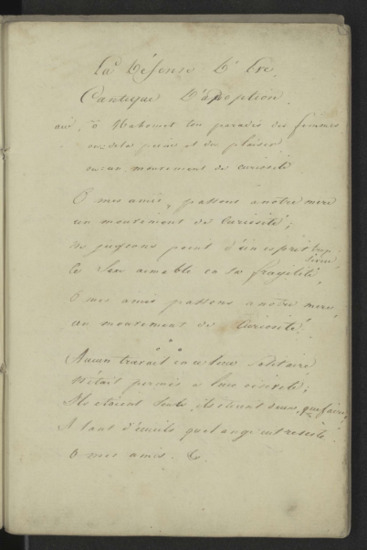 La Défense D'Eve
Cantique D'adoption
air, ô Mahomet ton paradis des femmes
ou un mouvement de curiosité
O mes amis, passons a notre mere
un mouvement de Curiosité;
ne jugeons point d'un esprit trop
sévère,
Ce Sexe aimable en sa fragilité,
O mes amis passons a notre mere,
un mouvement de Curiosité.
Aucun travail en ce lieu solitaire
n'était permis à leur
Ils etoient Seuls, ils étoient deux, que faire,
A tant d'ennuis quel ange eut resisté
O mes amis. &c.